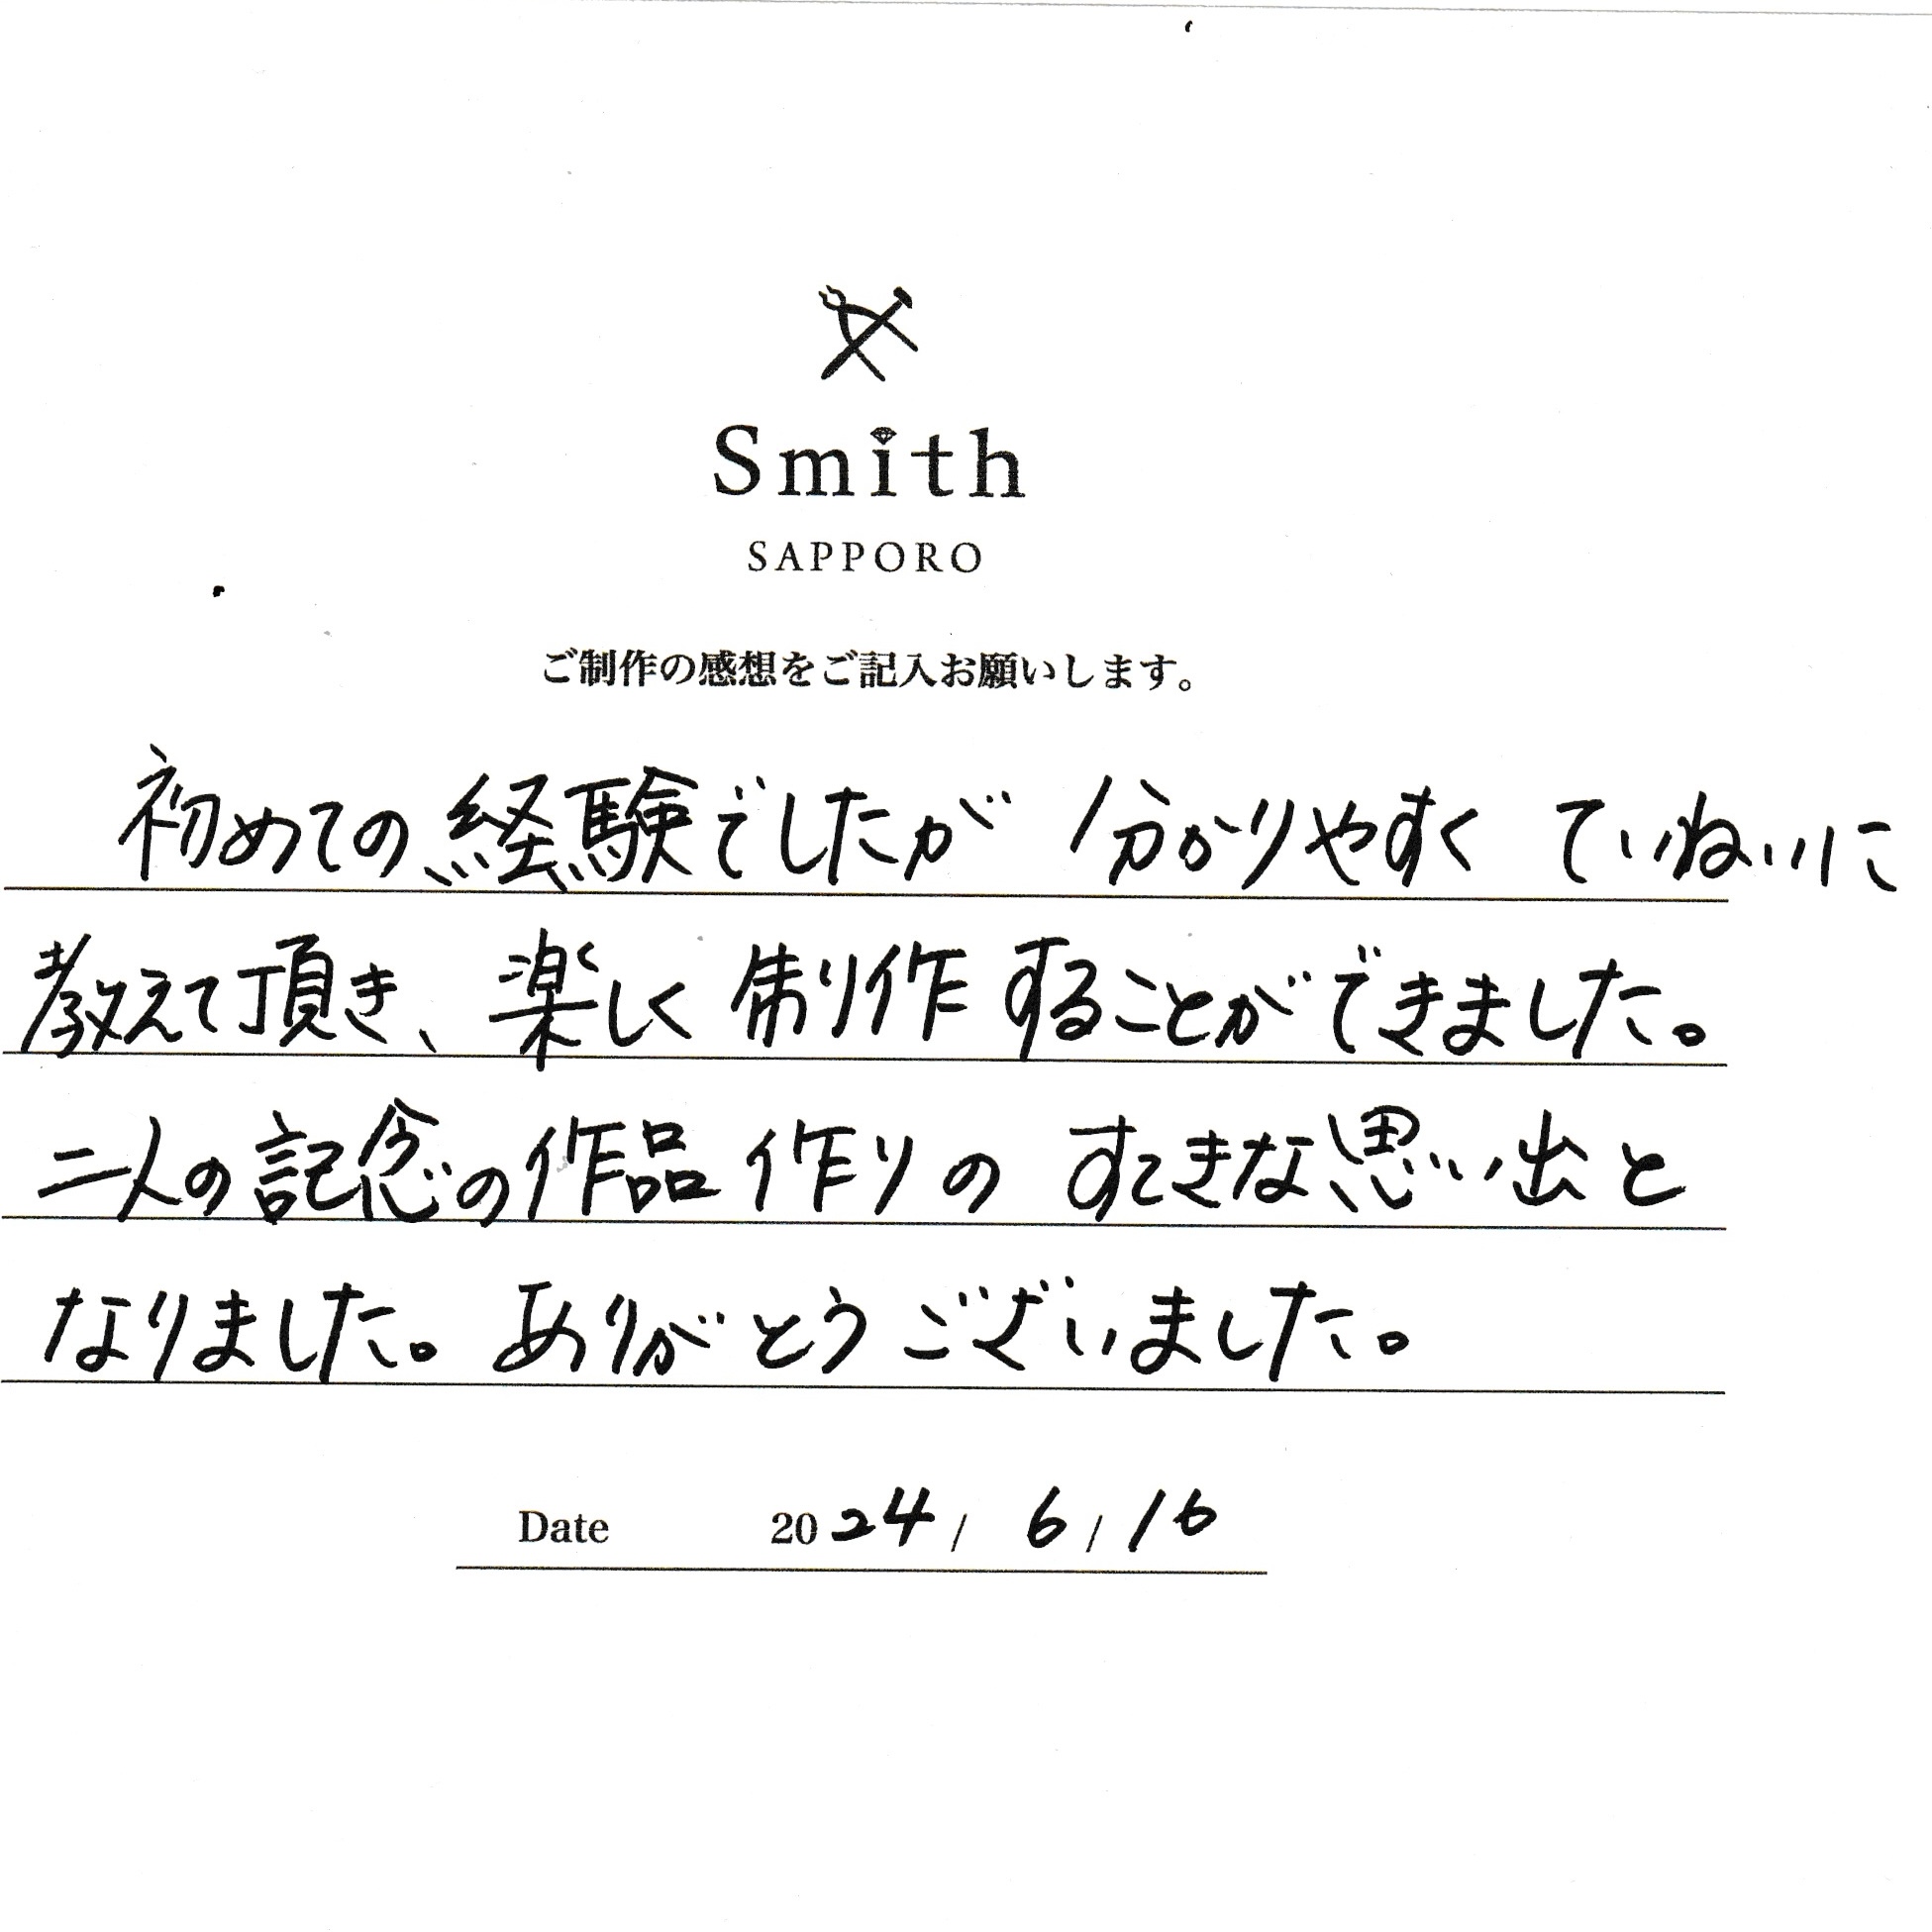 Smith
SAPPORO
ご制作の感想をご記入お願いします。
初めての経験でしたが 分かりやすく ていねいに
教えて頂き、楽しく制作することができました。
二人の記念の作品作りの すてきな思い出と
なりました。ありがとうございました。
Date 2024/6/16